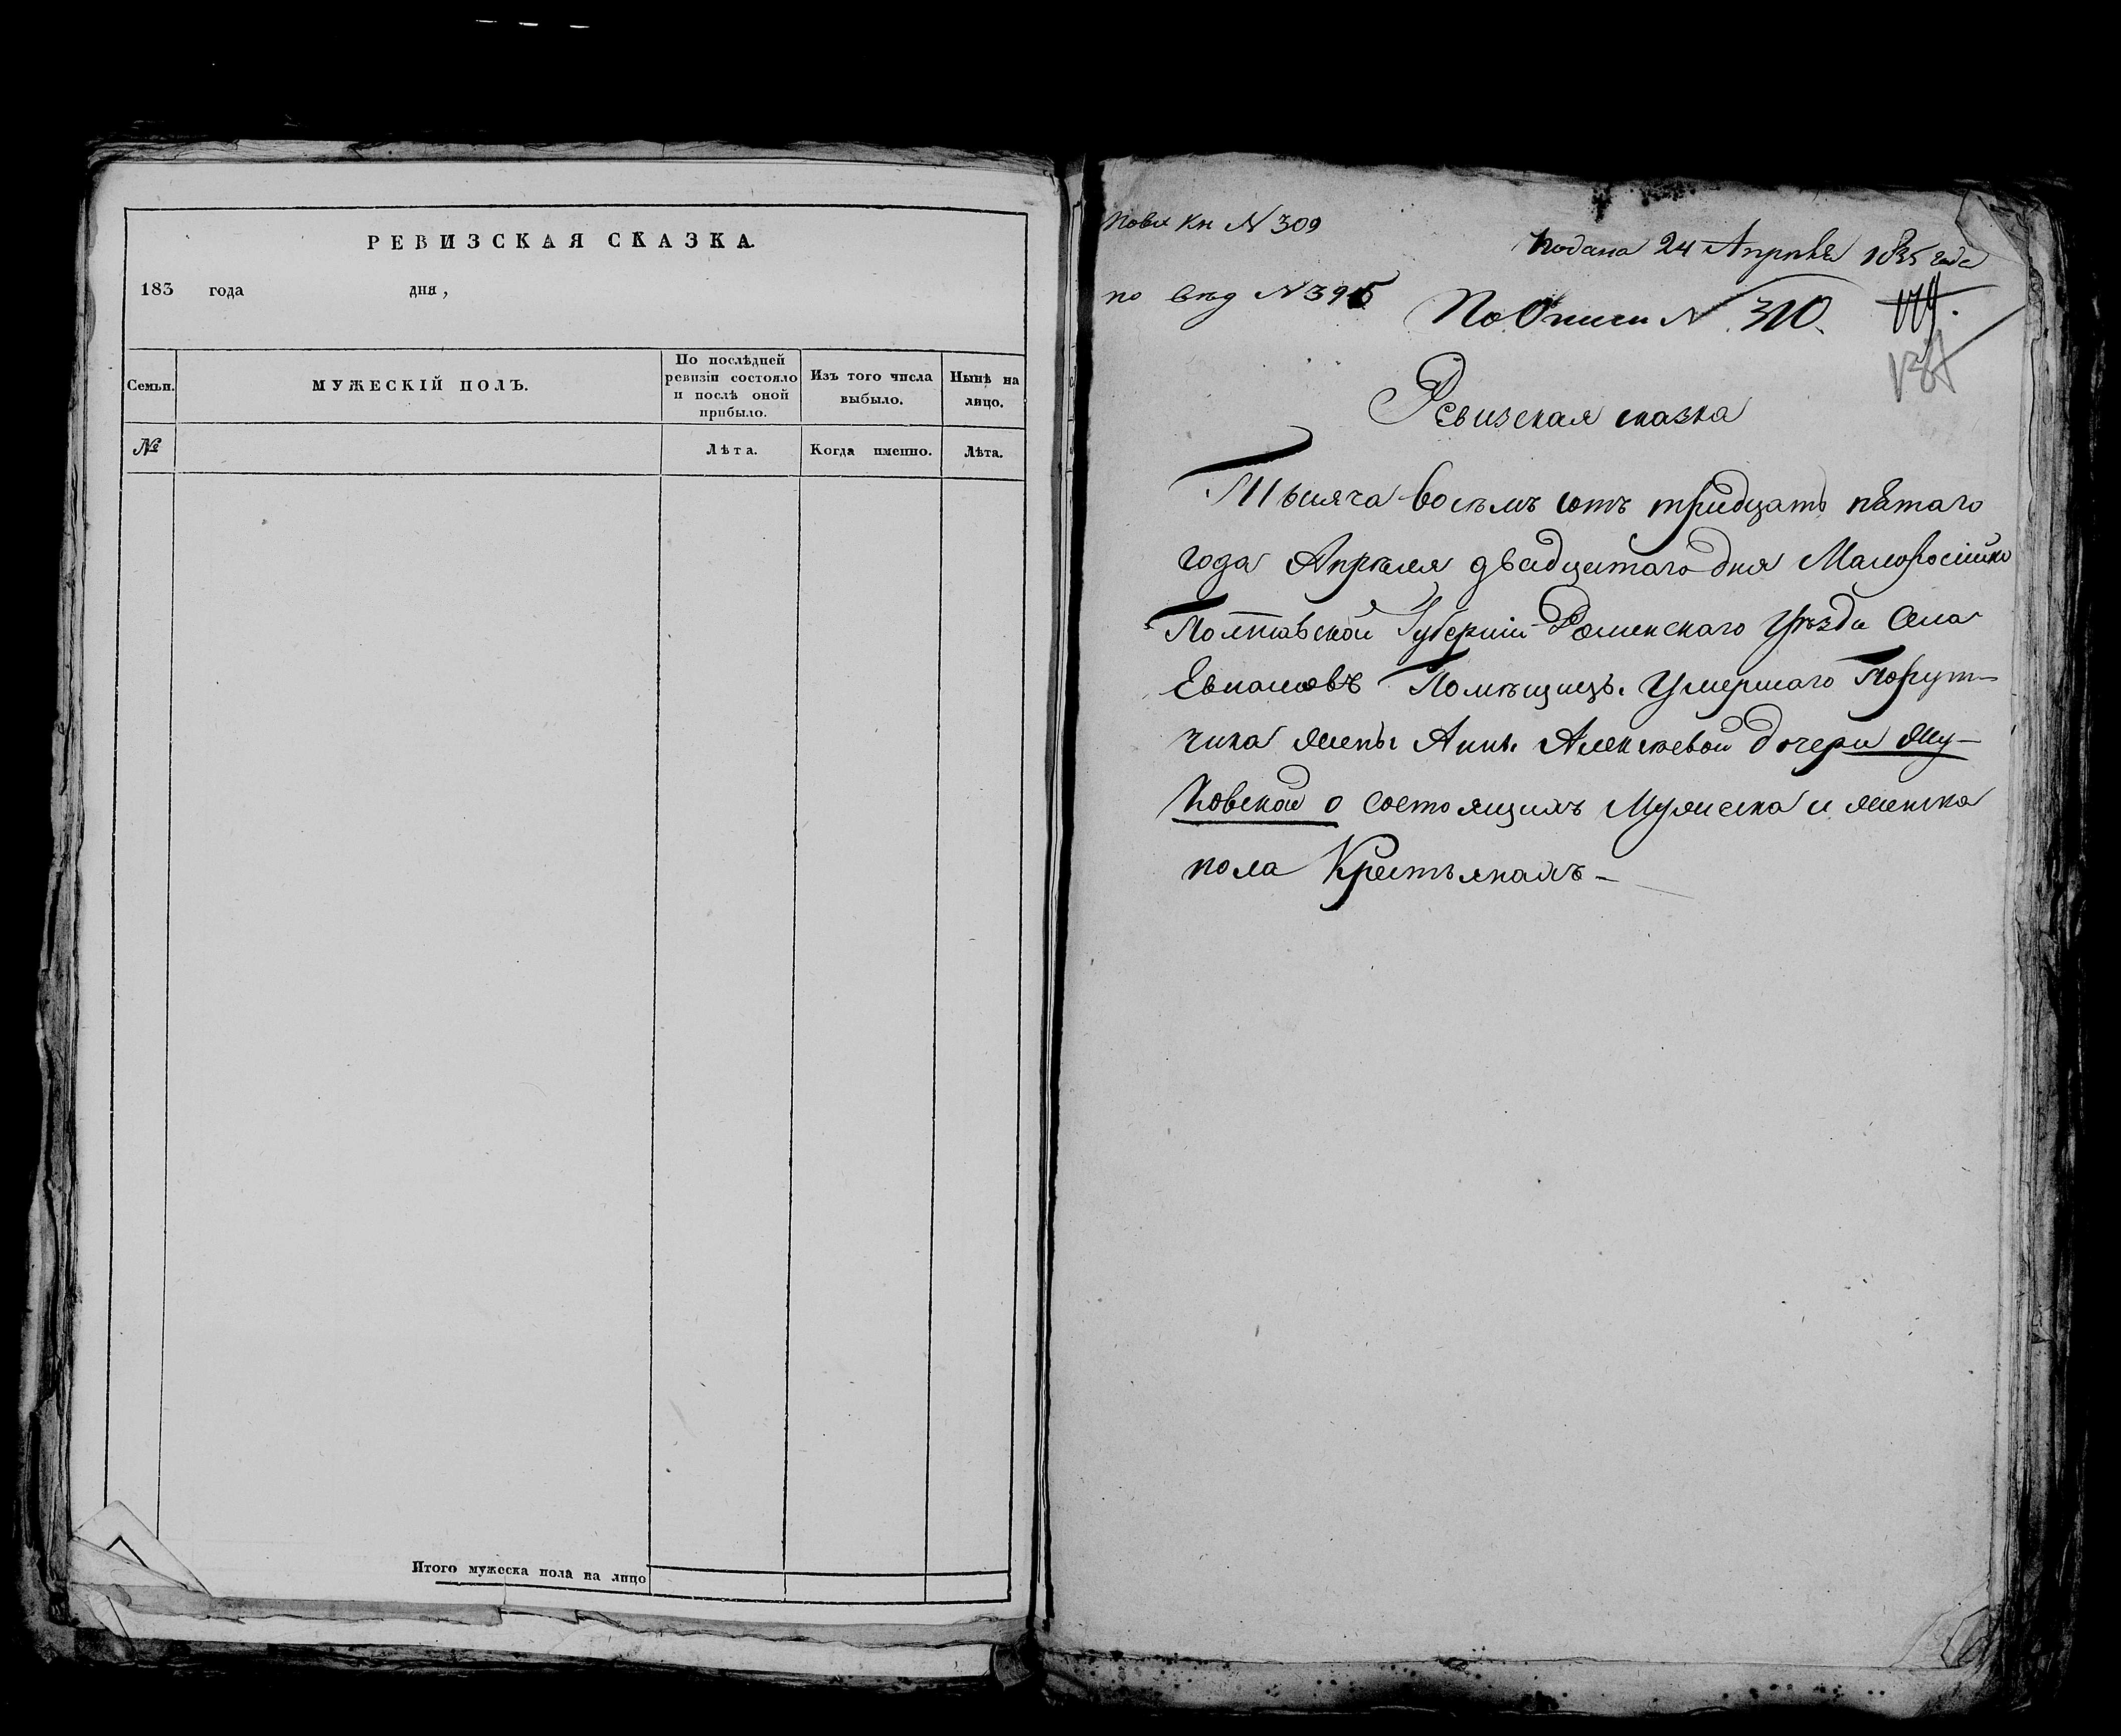 РЕВИЗСКАЯ СКАЗКА.
183 года дня,
Семьи.
МУЖЕСКІЙ ПОЛЪ.
По послѣдней
ревизіи состояло
и послѣ оной
прибыло.
Изъ того числа
выбыло.
Нынѣ на
лицо.
№
Лѣта.
Когда именно.
Лѣта.
Итого мужеска пола на лицо
Кн N 309
Подана 24 Апрѣля 1835 года
по N 395
По Описи N 310.
Ревизская сказка
Тысяча восемъ сотъ тридцать пятаго
года Апреля двадцатаго дня Малоросійско
Полтавской Губерніи Роменскаго Уѣзда Села
Помѣщицы Умершаго Порут-
чика жены Анны Алексѣевой дочери Жу-
ковской о состоящихъ Мужеска и женска
пола Крестьянахъ-